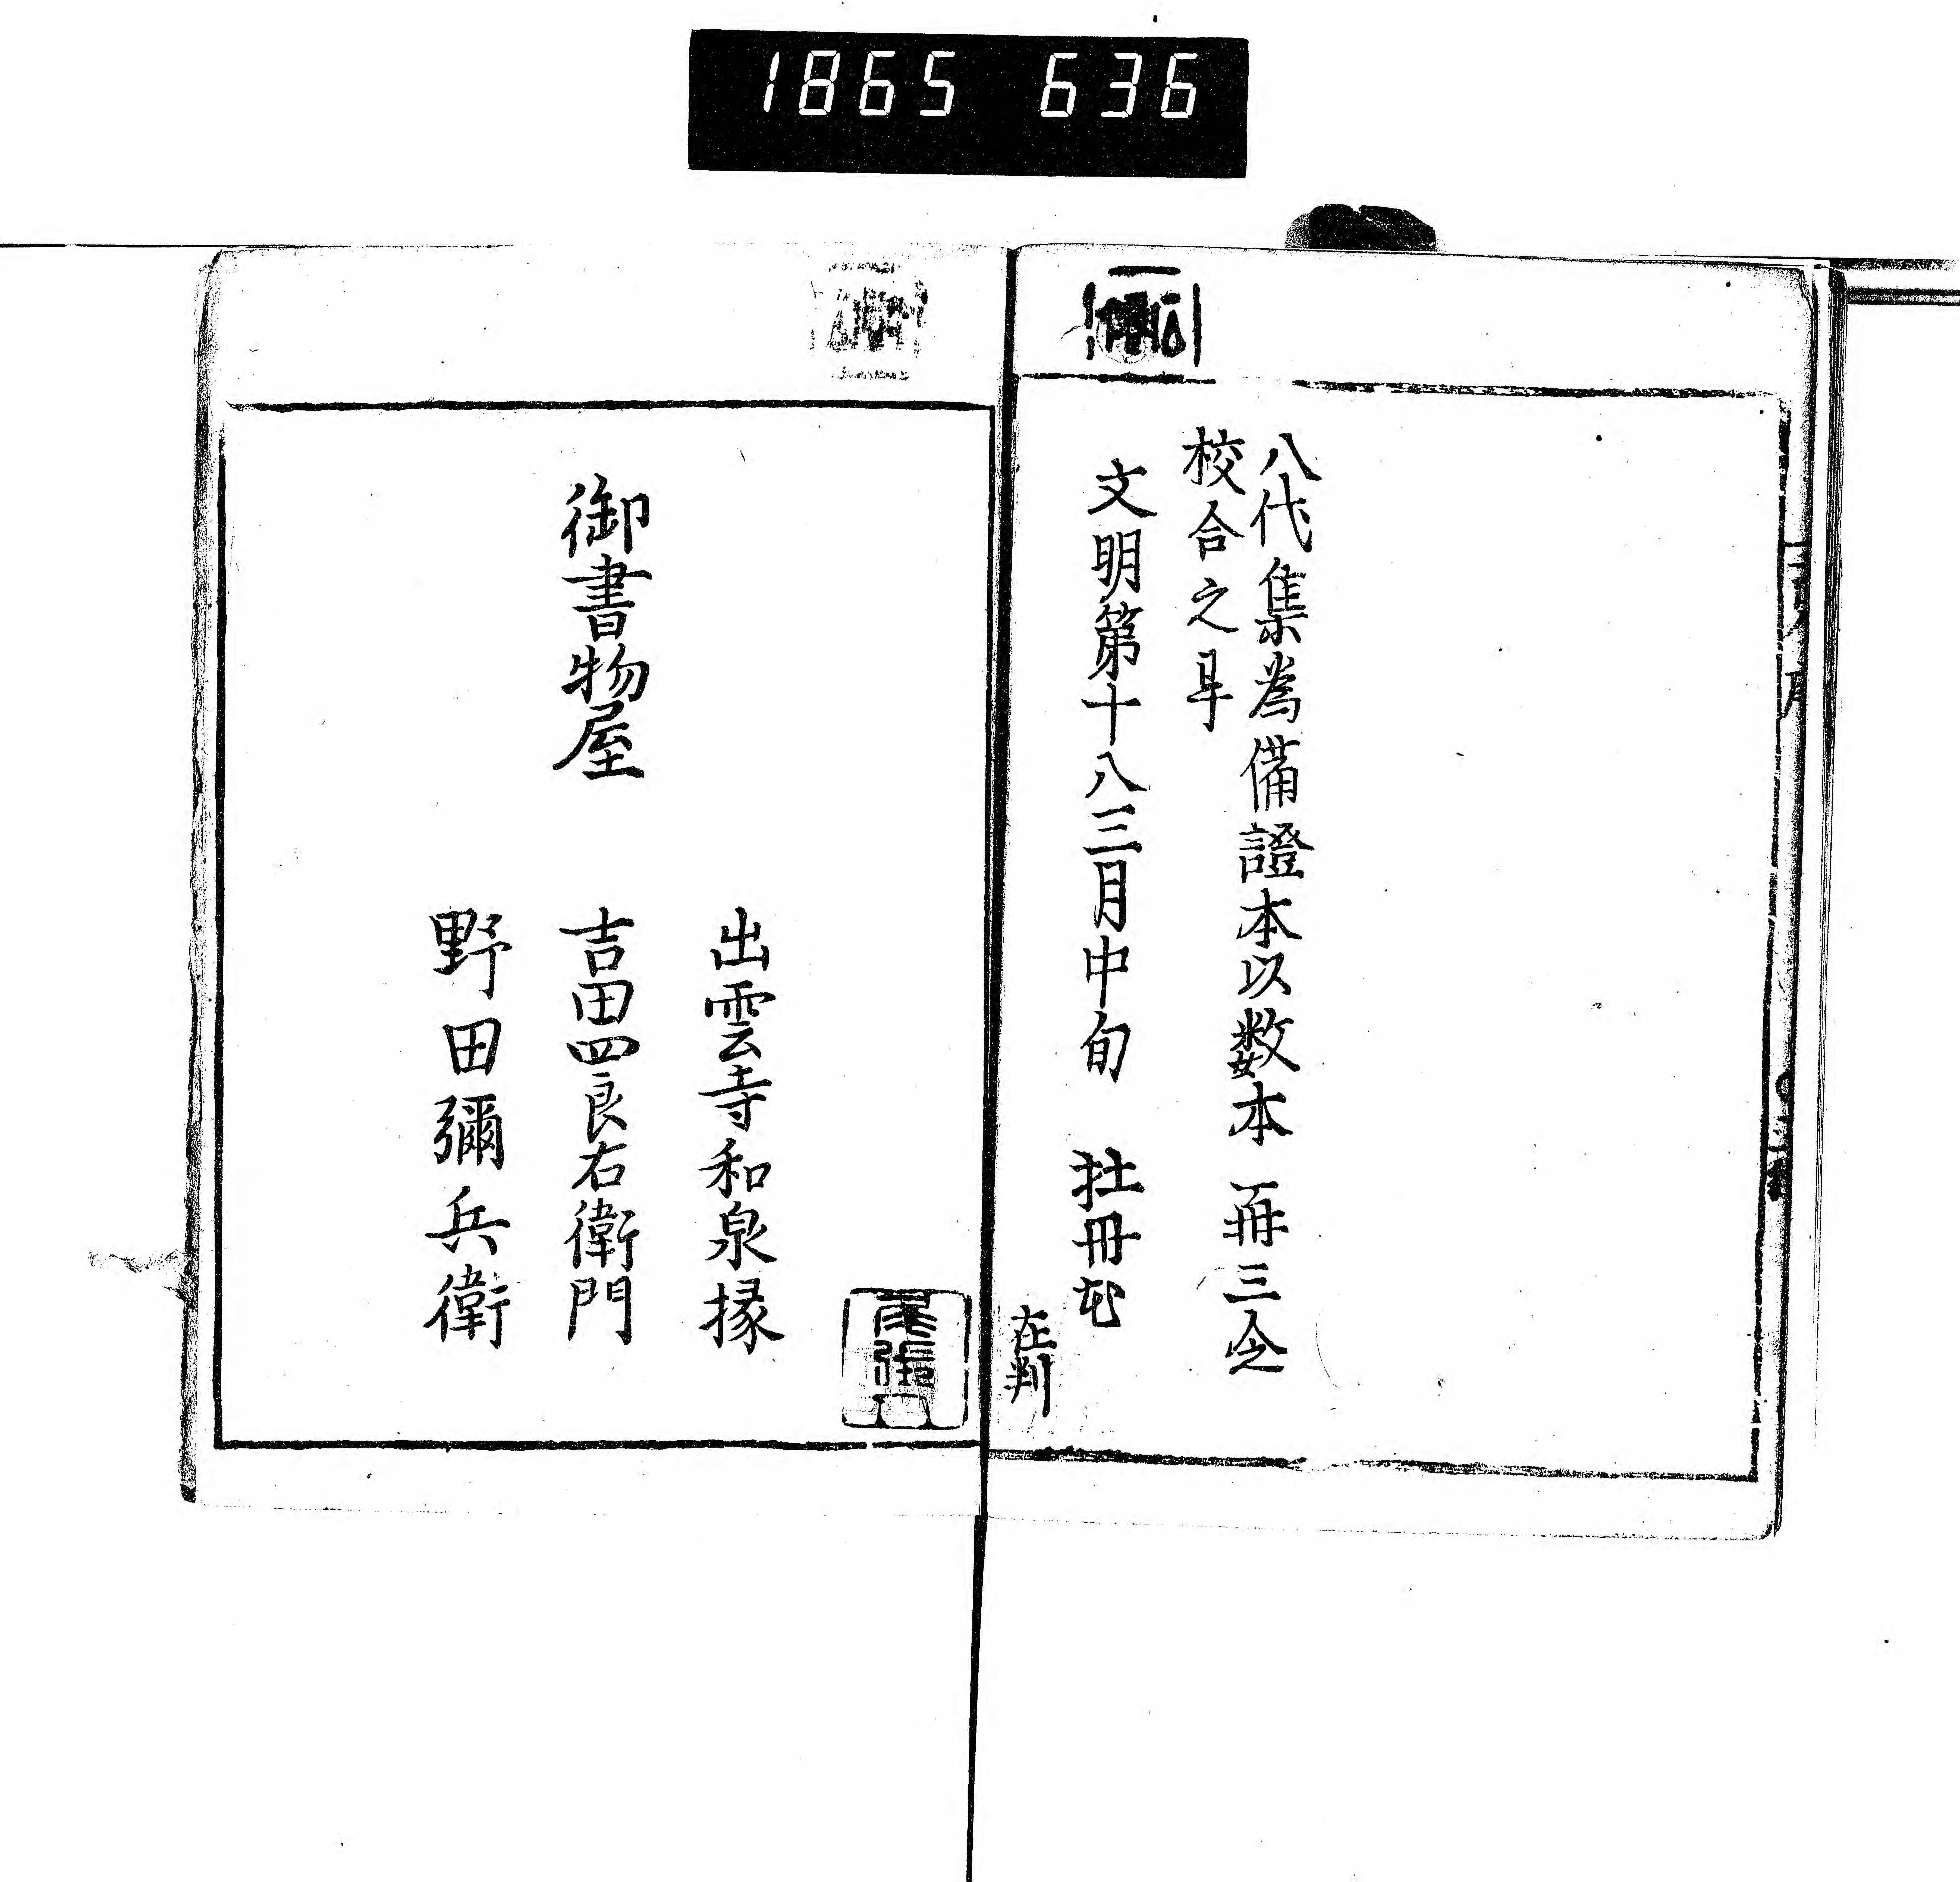 1865 636
八代集為備證本以数本再三令
校合之早
文明第十八三月中旬 牡丹花
在判
御書物屋
出雲寺和泉掾
吉田四良右衛門
野田彌兵衛